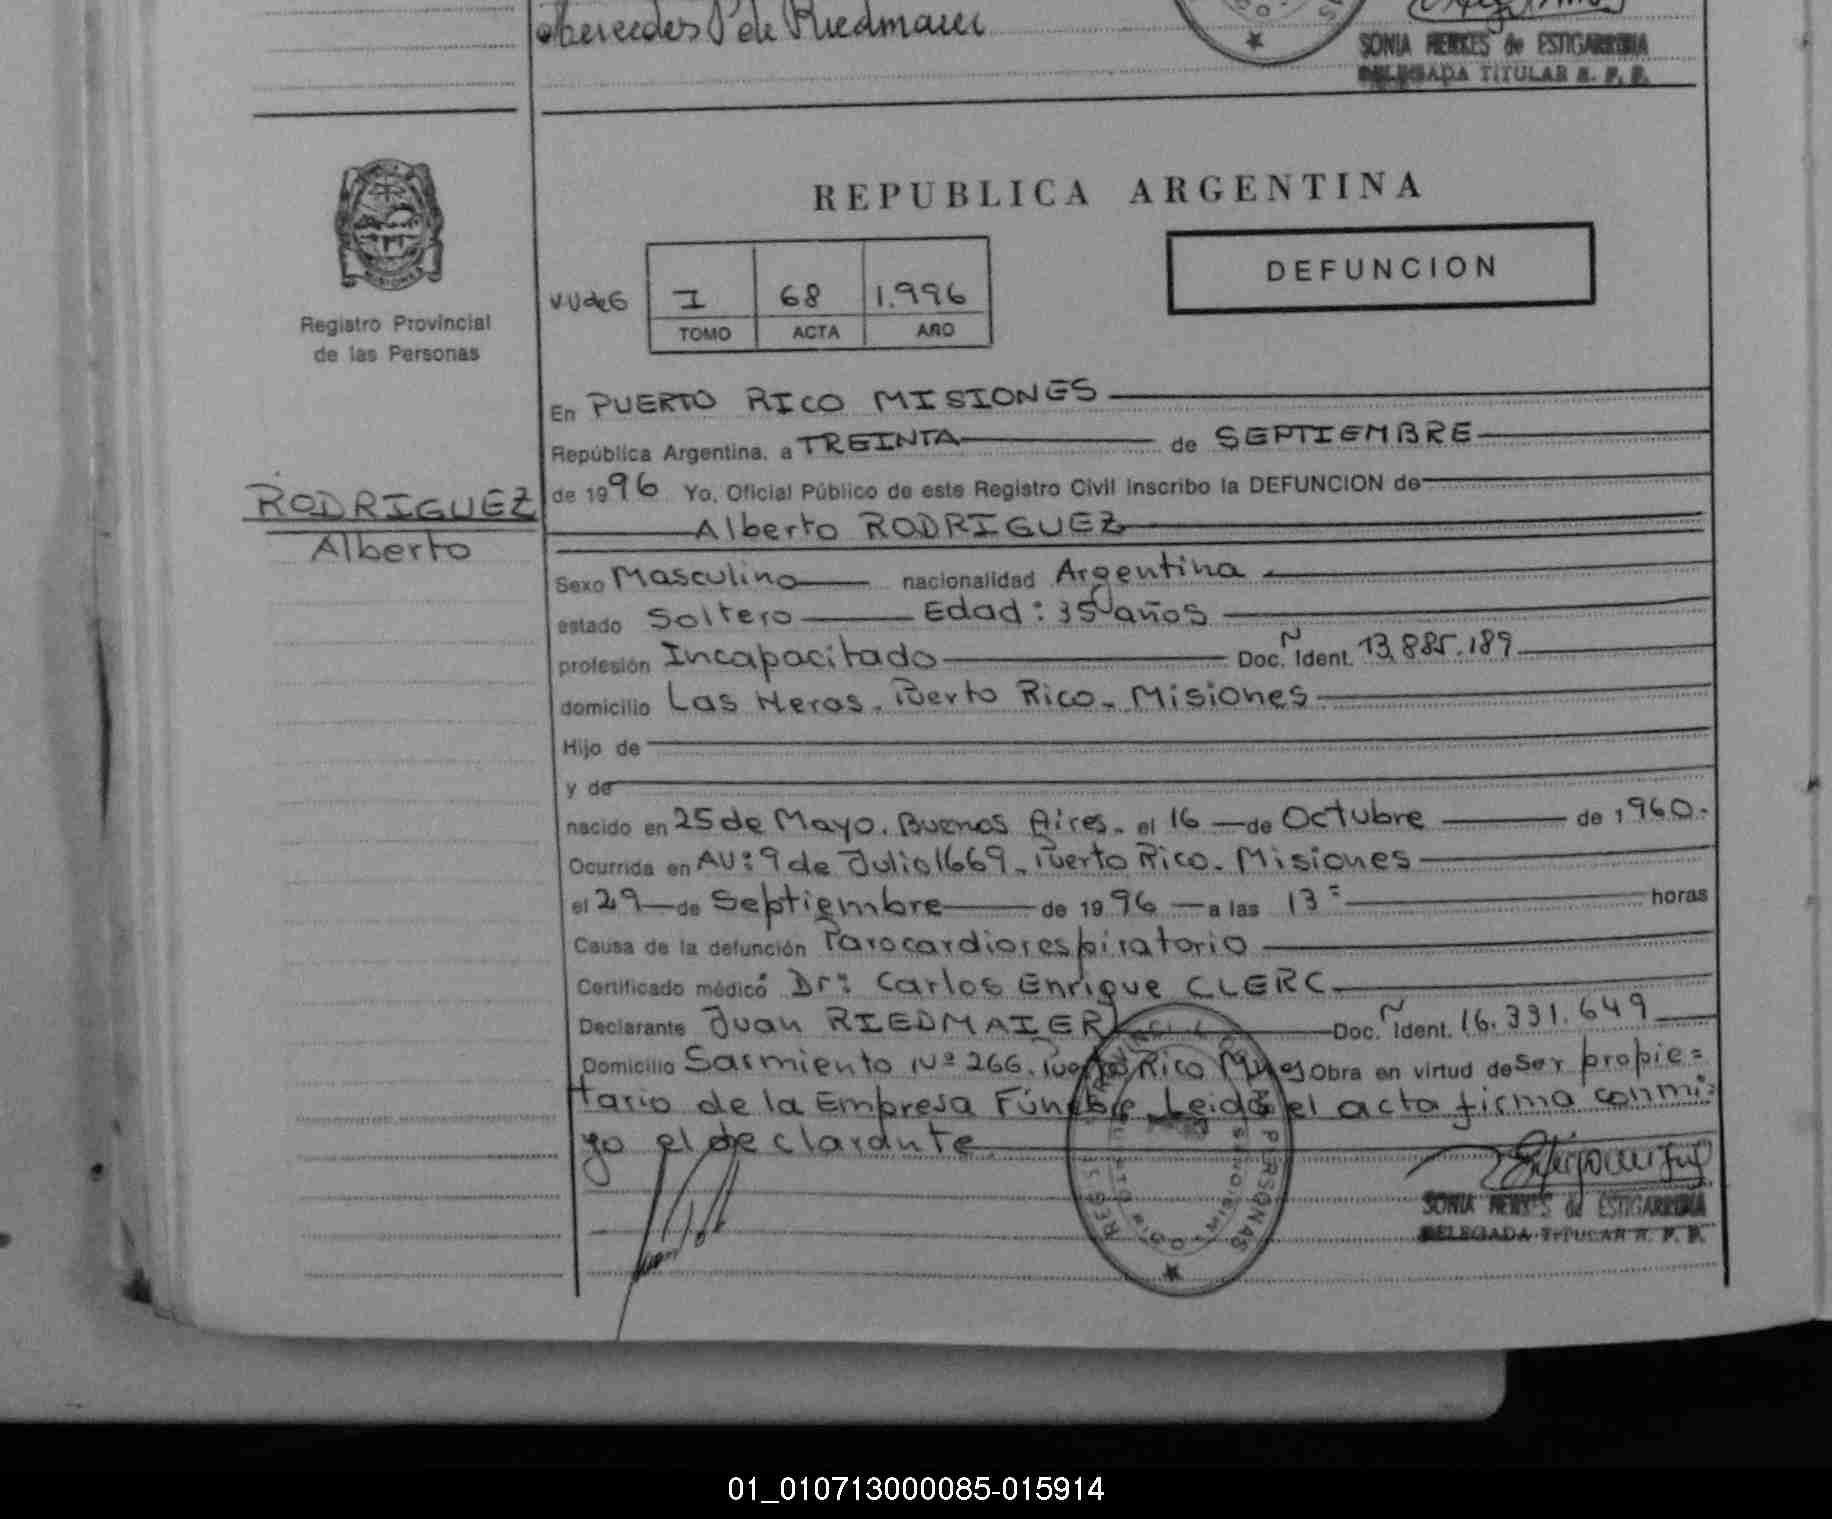 Mercedes P de Riedmaier
SONIA HENKES de ESTIGARRIBIA
DELEGADA TITULAR R. P. P.
MISIONES
Registro Provincial
de las Personas
REPUBLICA ARGENTINA
DEFUNCION
I 68 1.996
TOMO ACTA AÑO
En PUERTO RICO MISIONES
República Argentina, a TREINTA de SEPTIEMBRE
de 1996 Yo, Oficial Público de este Registro Civil inscribo la DEFUNCION de
RODRIGUEZ
Alberto
Alberto RODRIGUEZ
Sexo Masculino nacionalidad Argentina
estado Soltero Edad: 35 años
profesión Incapacitado Doc. Ident. 13.885.189
domicilio Las Heras. Puerto Rico. Misiones
Hijo de
y de
nacido en 25 de Mayo. Buenos Aires. el 16 de Octubre de 1960.
Ocurrida en AV: 9 de Julio 1669. Puerto Rico. Misiones
el 29 de Septiembre de 1996 a las 13 horas
Causa de la defunción Parocardiorespiratorio
Certificado médico Dr: Carlos Enrique CLERC
Declarante Juan RIEDMAIER Doc. Ident. 16.331.649
Domicilio Sarmiento Nº 266. Puerto Rico Mnes Obra en virtud de Ser propie=
tario de la Empresa Fúnebre Leida el acta firma conmi=
go el declarante
SONIA HENKES de ESTIGARRIBIA
DELEGADA TITULAR R. P. P.
01_010713000085-015914